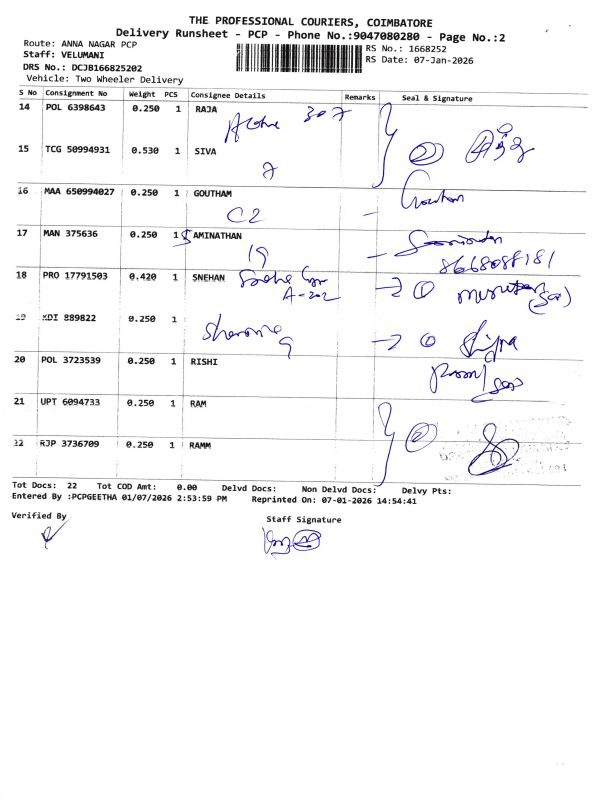 THE PROFESSIONAL COURIERS, COIMBATORE
Delivery Runsheet - PCP - Phone No.:9047080280 - Page No.:2
Route: ANNA NAGAR PCP
RS No.: 1668252
Staff: VELUMANI
RS Date: 07-Jan-2026
DRS No.: DCJB166825202
Vehicle: Two Wheeler Delivery
S No Consignment No Weight PCS Consignee Details Remarks Seal & Signature
14 POL 6398643 0.250 1 RAJA
307
15 TCG 50994931 0.530 1 SIVA
2
7
16 MAA 650994027 0.250 1 GOUTHAM
Goutham
C2
17 MAN 375636 0.250 1 AMINATHAN
19
8668088181
18 PRO 17791503 0.420 1 SNEHAN
A-202
1
19 KDI 889822 0.250 1
9
1
20 POL 3723539 0.250 1 RISHI
21 UPT 6094733 0.250 1 RAM
2
22 RJP 3736709 0.250 1 RAMM
Tot Docs: 22 Tot COD Amt: 0.00 Delvd Docs: Non Delvd Docs: Delvy Pts:
Entered By :PCPGEETHA 01/07/2026 2:53:59 PM Reprinted On: 07-01-2026 14:54:41
Verified By
Staff Signature